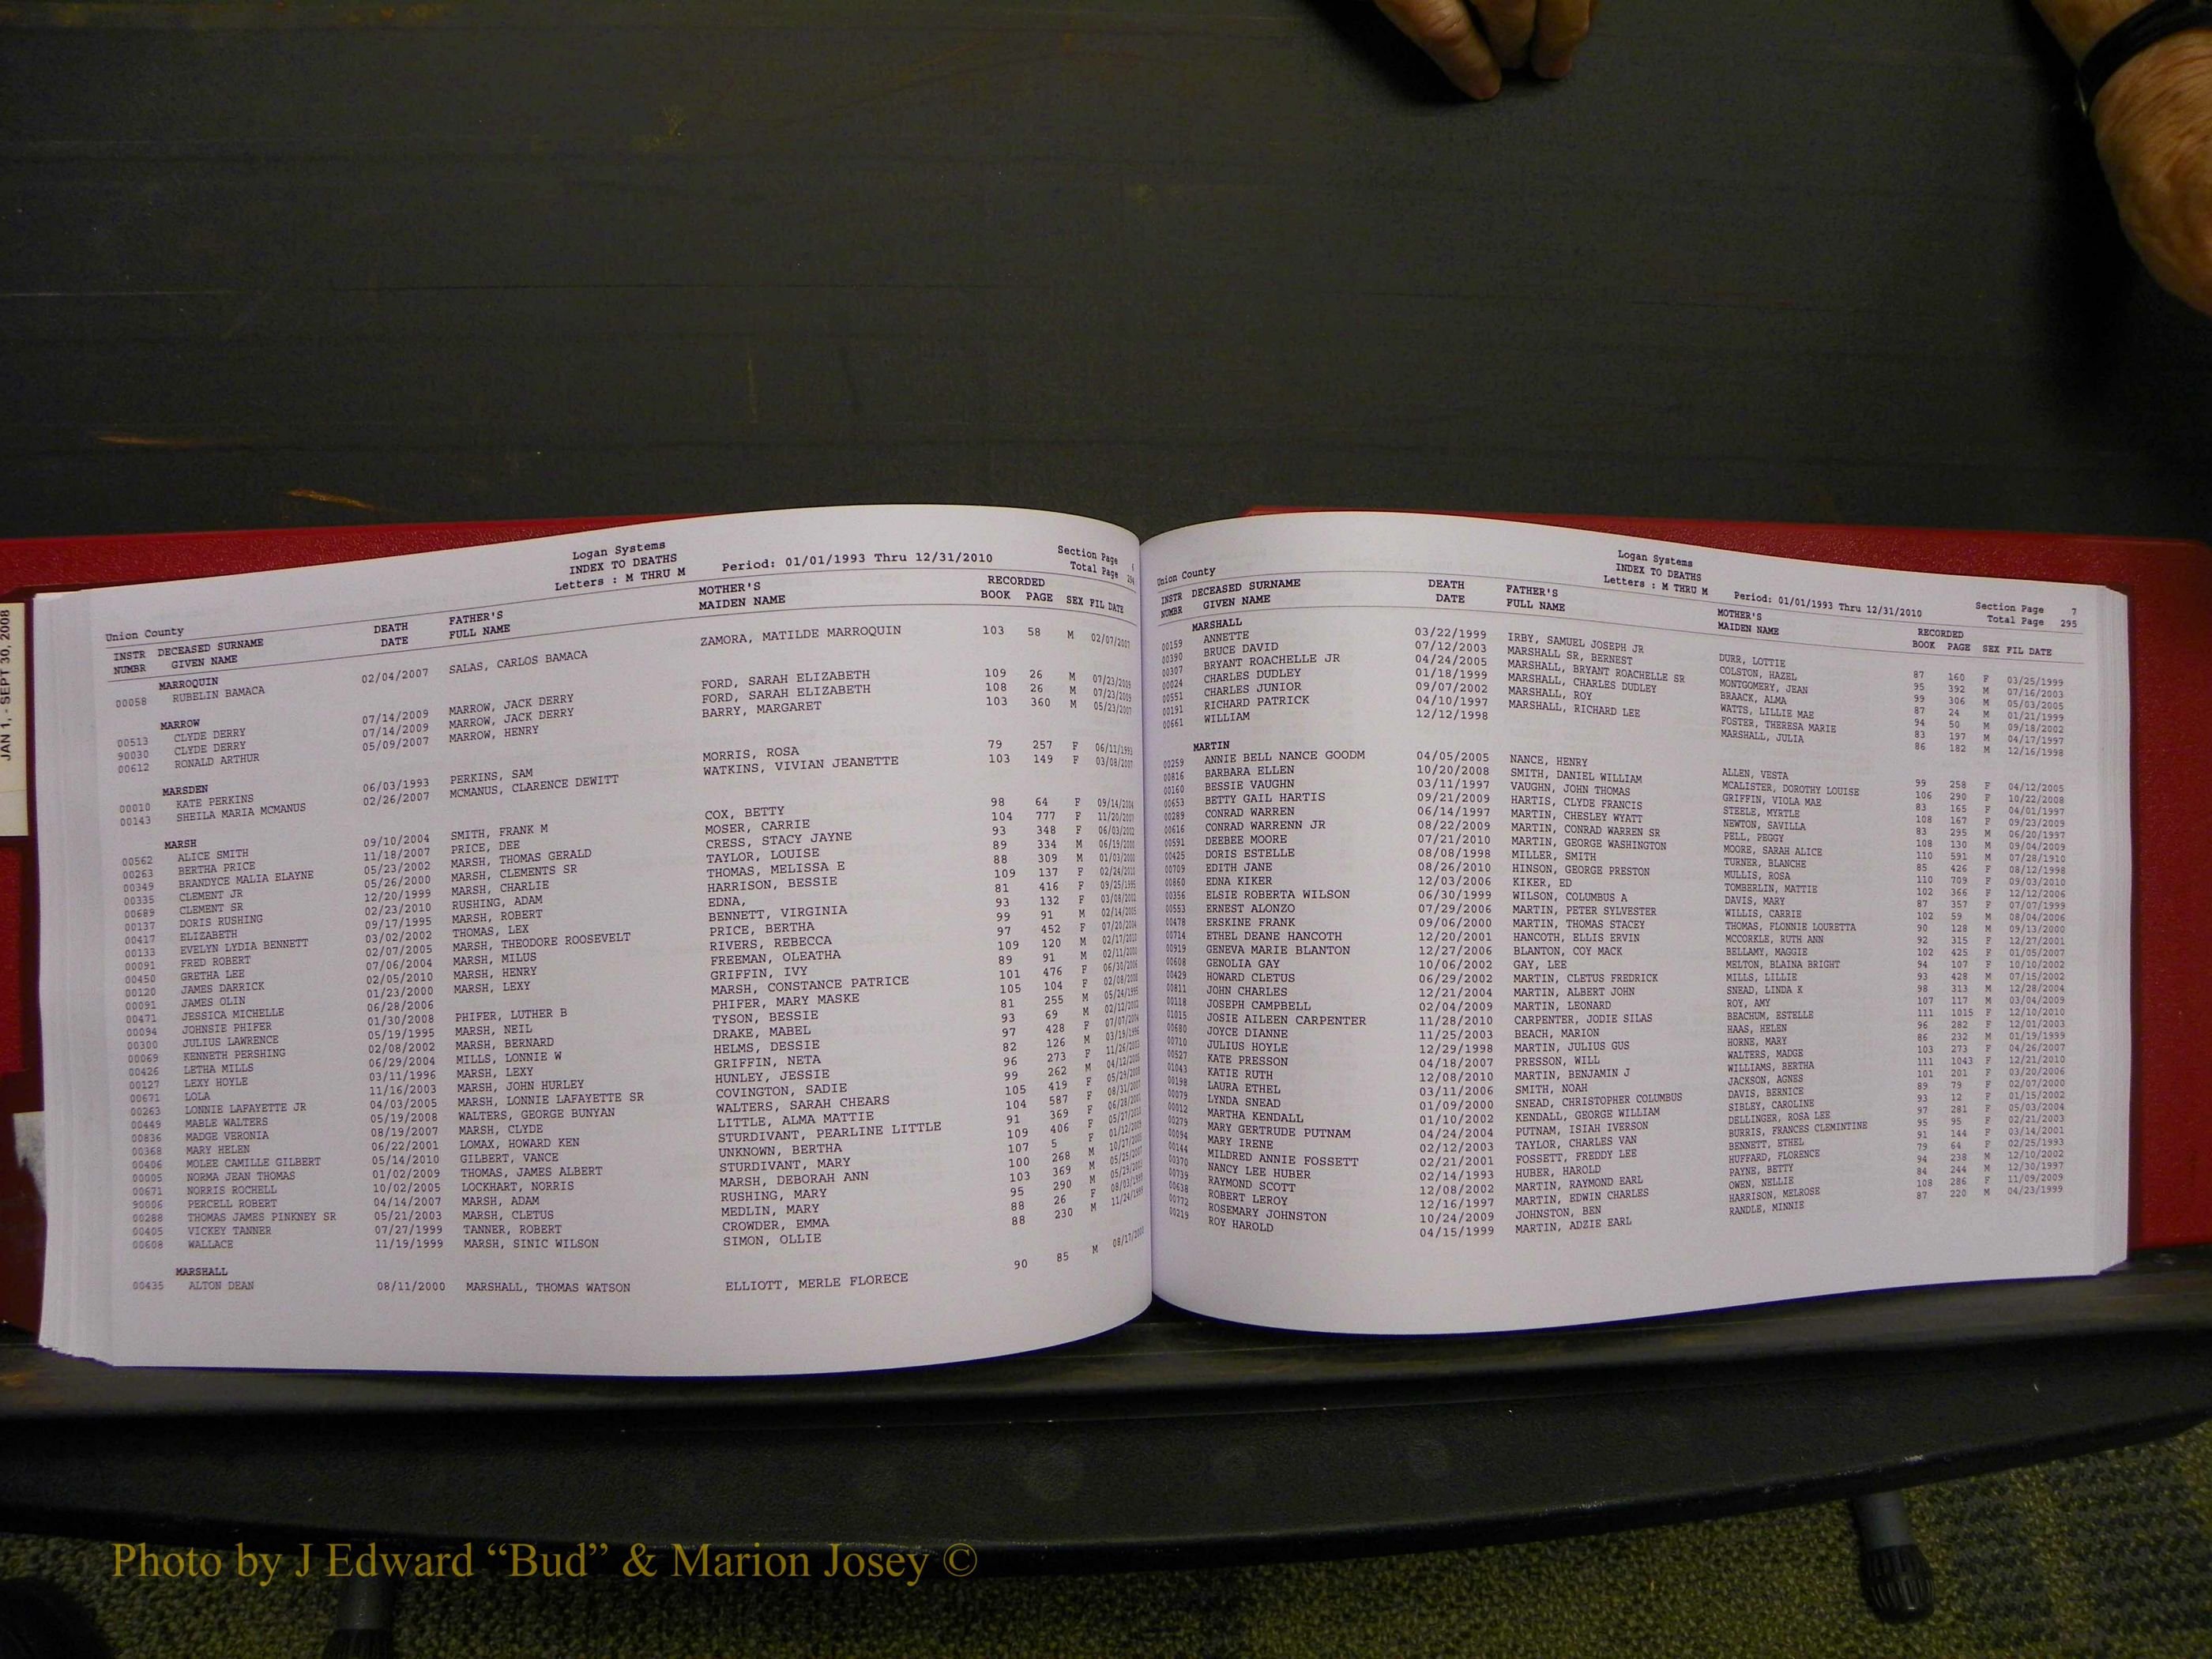 Logan Systems
INDEX TO DEATHS
Letters : M THRU M Period: 01/01/1993 Thru 12/31/2010
Section Page
Total Page
Union County
INSTR NUMBR DECEASED SURNAME GIVEN NAME DEATH DATE FATHER'S FULL NAME MOTHER'S MAIDEN NAME RECORDED BOOK PAGE SEX FIL DATE
MARROQUIN
00058 RUBELIN BAMACA 02/04/2007 SALAS, CARLOS BAMACA ZAMORA, MATILDE MARROQUIN 103 58 M 02/07/2007
MARROW
00513 CLYDE DERRY 07/14/2009 MARROW, JACK DERRY FORD, SARAH ELIZABETH 109 26 M 07/23/2009
90030 CLYDE DERRY 07/14/2009 MARROW, JACK DERRY FORD, SARAH ELIZABETH 108 26 M 07/23/2009
00612 RONALD ARTHUR 05/09/2007 MARROW, HENRY BARRY, MARGARET 103 360 M 05/23/2007
MARSDEN
00010 KATE PERKINS 06/03/1993 PERKINS, SAM MORRIS, ROSA 79 257 F 06/11/1993
00143 SHEILA MARIA MCMANUS 02/26/2007 MCMANUS, CLARENCE DEWITT WATKINS, VIVIAN JEANETTE 103 149 F 03/08/2007
MARSH
00562 ALICE SMITH 09/10/2004 SMITH, FRANK M COX, BETTY 98 64 F 09/14/2004
00263 BERTHA PRICE 11/18/2007 PRICE, DEE MOSER, CARRIE 104 777 F 11/20/2007
00349 BRANDYCE MALIA ELAYNE 05/23/2002 MARSH, THOMAS GERALD CRESS, STACY JAYNE 93 348 F 06/03/2002
00335 CLEMENT JR 05/26/2000 MARSH, CLEMENTS SR TAYLOR, LOUISE 89 334 M 06/19/2000
00689 CLEMENT SR 12/20/1999 MARSH, CHARLIE THOMAS, MELISSA E 88 309 M 01/03/2000
00137 DORIS RUSHING 02/23/2010 RUSHING, ADAM HARRISON, BESSIE 109 137 F 02/24/2010
00417 ELIZABETH 09/17/1995 MARSH, ROBERT EDNA, 81 416 F 09/25/1995
00133 EVELYN LYDIA BENNETT 03/02/2002 THOMAS, LEX BENNETT, VIRGINIA 93 132 F 03/08/2002
00091 FRED ROBERT 02/07/2005 MARSH, THEODORE ROOSEVELT PRICE, BERTHA 99 91 M 02/14/2005
00450 GRETHA LEE 07/06/2004 MARSH, MILUS RIVERS, REBECCA 97 452 F 07/20/2004
00120 JAMES DARRICK 02/05/2010 MARSH, HENRY FREEMAN, OLEATHA 109 120 M 02/17/2010
00091 JAMES OLIN 01/23/2000 MARSH, LEXY GRIFFIN, IVY 89 91 M 02/11/2000
00471 JESSICA MICHELLE 06/28/2006 MARSH, CONSTANCE PATRICE 101 476 F 06/30/2006
00094 JOHNSIE PHIFER 01/30/2008 PHIFER, LUTHER B PHIFER, MARY MASKE 105 104 F 02/08/2008
00300 JULIUS LAWRENCE 05/19/1995 MARSH, NEIL TYSON, BESSIE 81 255 M 05/24/1995
00069 KENNETH PERSHING 02/08/2002 MARSH, BERNARD DRAKE, MABEL 93 69 M 02/12/2002
00426 LETHA MILLS 06/29/2004 MILLS, LONNIE W HELMS, DESSIE 97 428 F 07/07/2004
00127 LEXY HOYLE 03/11/1996 MARSH, LEXY GRIFFIN, NETA 82 126 M 03/19/1996
00671 LOLA 11/16/2003 MARSH, JOHN HURLEY HUNLEY, JESSIE 96 273 F 11/26/2003
00263 LONNIE LAFAYETTE JR 04/03/2005 MARSH, LONNIE LAFAYETTE SR COVINGTON, SADIE 99 262 M 04/12/2005
00449 MABLE WALTERS 05/19/2008 WALTERS, GEORGE BUNYAN WALTERS, SARAH CHEARS 105 419 F 05/29/2008
00836 MADGE VERONIA 08/19/2007 MARSH, CLYDE LITTLE, ALMA MATTIE 104 587 F 08/31/2007
00368 MARY HELEN 06/22/2001 LOMAX, HOWARD KEN STURDIVANT, PEARLINE LITTLE 91 369 F 06/28/2001
00406 MOLEE CAMILLE GILBERT 05/14/2010 GILBERT, VANCE UNKNOWN, BERTHA 109 406 F 05/27/2010
00005 NORMA JEAN THOMAS 01/02/2009 THOMAS, JAMES ALBERT STURDIVANT, MARY 107 5 F 01/12/2009
00671 NORRIS ROCHELL 10/02/2005 LOCKHART, NORRIS MARSH, DEBORAH ANN 100 268 M 10/27/2005
90006 PERCELL ROBERT 04/14/2007 MARSH, ADAM RUSHING, MARY 103 369 M 05/25/2007
00288 THOMAS JAMES PINKNEY SR 05/21/2003 MARSH, CLETUS MEDLIN, MARY 95 290 M 05/29/2003
00405 VICKEY TANNER 07/27/1999 TANNER, ROBERT CROWDER, EMMA 88 26 F 08/03/1999
00608 WALLACE 11/19/1999 MARSH, SINIC WILSON SIMON, OLLIE 88 230 M 11/24/1999
MARSHALL
00435 ALTON DEAN 08/11/2000 MARSHALL, THOMAS WATSON ELLIOTT, MERLE FLORECE 90 85 M 08/17/2000
JAN 1, - SEPT 30, 2008
Logan Systems
INDEX TO DEATHS
Letters : M THRU M Period: 01/01/1993 Thru 12/31/2010
Section Page 7
Total Page 295
Union County
INSTR NUMBR DECEASED SURNAME GIVEN NAME DEATH DATE FATHER'S FULL NAME MOTHER'S MAIDEN NAME RECORDED BOOK PAGE SEX FIL DATE
MARSHALL
00159 ANNETTE 03/22/1999 IRBY, SAMUEL JOSEPH JR DURR, LOTTIE 87 160 F 03/25/1999
00390 BRUCE DAVID 07/12/2003 MARSHALL SR, BERNEST COLSTON, HAZEL 95 392 M 07/16/2003
00307 BRYANT ROACHELLE JR 04/24/2005 MARSHALL, BRYANT ROACHELLE SR MONTGOMERY, JEAN 99 306 M 05/03/2005
00024 CHARLES DUDLEY 01/18/1999 MARSHALL, CHARLES DUDLEY BRAACK, ALMA 87 24 M 01/21/1999
00551 CHARLES JUNIOR 09/07/2002 MARSHALL, ROY WATTS, LILLIE MAE 94 50 M 09/18/2002
00191 RICHARD PATRICK 04/10/1997 MARSHALL, RICHARD LEE FOSTER, THERESA MARIE 83 197 M 04/17/1997
00661 WILLIAM 12/12/1998 MARSHALL, JULIA 86 182 M 12/16/1998
MARTIN
00259 ANNIE BELL NANCE GOODM 04/05/2005 NANCE, HENRY ALLEN, VESTA 99 258 F 04/12/2005
00816 BARBARA ELLEN 10/20/2008 SMITH, DANIEL WILLIAM MCALISTER, DOROTHY LOUISE 106 290 F 10/22/2008
00160 BESSIE VAUGHN 03/11/1997 VAUGHN, JOHN THOMAS GRIFFIN, VIOLA MAE 83 165 F 04/01/1997
00653 BETTY GAIL HARTIS 09/21/2009 HARTIS, CLYDE FRANCIS STEELE, MYRTLE 108 167 F 09/23/2009
00289 CONRAD WARREN 06/14/1997 MARTIN, CHESLEY WYATT NEWTON, SAVILLA 83 295 M 06/20/1997
00616 CONRAD WARRENN JR 08/22/2009 MARTIN, CONRAD WARREN SR PELL, PEGGY 108 130 M 09/04/2009
00591 DEEBEE MOORE 07/21/2010 MARTIN, GEORGE WASHINGTON MOORE, SARAH ALICE 110 591 M 07/28/1910
00425 DORIS ESTELLE 08/08/1998 MILLER, SMITH TURNER, BLANCHE 85 426 F 08/12/1998
00709 EDITH JANE 08/26/2010 HINSON, GEORGE PRESTON MULLIS, ROSA 110 709 F 09/03/2010
00860 EDNA KIKER 12/03/2006 KIKER, ED TOMBERLIN, MATTIE 102 366 F 12/12/2006
00356 ELSIE ROBERTA WILSON 06/30/1999 WILSON, COLUMBUS A DAVIS, MARY 87 357 F 07/07/1999
00553 ERNEST ALONZO 07/29/2006 MARTIN, PETER SYLVESTER WILLIS, CARRIE 102 59 M 08/04/2006
00478 ERSKINE FRANK 09/06/2000 MARTIN, THOMAS STACEY THOMAS, FLONNIE LOURETTA 90 128 M 09/13/2000
00714 ETHEL DEANE HANCOTH 12/20/2001 HANCOTH, ELLIS ERVIN MCCORKLE, RUTH ANN 92 315 F 12/27/2001
00919 GENEVA MARIE BLANTON 12/27/2006 BLANTON, COY MACK BELLAMY, MAGGIE 102 425 F 01/05/2007
00608 GENOLIA GAY 10/06/2002 GAY, LEE MELTON, BLAINA BRIGHT 94 107 F 10/10/2002
00429 HOWARD CLETUS 06/29/2002 MARTIN, CLETUS FREDRICK MILLS, LILLIE 93 428 M 07/15/2002
00811 JOHN CHARLES 12/21/2004 MARTIN, ALBERT JOHN SNEAD, LINDA K 98 313 M 12/28/2004
00118 JOSEPH CAMPBELL 02/04/2009 MARTIN, LEONARD ROY, AMY 107 117 M 03/04/2009
01015 JOSIE AILEEN CARPENTER 11/28/2010 CARPENTER, JODIE SILAS BEACHUM, ESTELLE 111 1015 F 12/10/2010
00680 JOYCE DIANNE 11/25/2003 BEACH, MARION HAAS, HELEN 96 282 F 12/01/2003
00710 JULIUS HOYLE 12/29/1998 MARTIN, JULIUS GUS HORNE, MARY 86 232 M 01/19/1999
00527 KATE PRESSON 04/18/2007 PRESSON, WILL WALTERS, MADGE 103 273 F 04/26/2007
01043 KATIE RUTH 12/08/2010 MARTIN, BENJAMIN J WILLIAMS, BERTHA 111 1043 F 12/21/2010
00198 LAURA ETHEL 03/11/2006 SMITH, NOAH JACKSON, AGNES 101 201 F 03/20/2006
00079 LYNDA SNEAD 01/09/2000 SNEAD, CHRISTOPHER COLUMBUS DAVIS, BERNICE 89 79 F 02/07/2000
00012 MARTHA KENDALL 01/10/2002 KENDALL, GEORGE WILLIAM SIBLEY, CAROLINE 93 12 F 01/15/2002
00279 MARY GERTRUDE PUTNAM 04/24/2004 PUTNAM, ISIAH IVERSON DELLINGER, ROSA LEE 97 281 F 05/03/2004
00094 MARY IRENE 02/12/2003 TAYLOR, CHARLES VAN BURRIS, FRANCES CLEMINTINE 95 95 F 02/21/2003
00144 MILDRED ANNIE FOSSETT 02/21/2001 FOSSETT, FREDDY LEE BENNETT, ETHEL 91 144 F 03/14/2001
00370 NANCY LEE HUBER 02/14/1993 HUBER, HAROLD HUFFARD, FLORENCE 79 64 F 02/25/1993
00739 RAYMOND SCOTT 12/08/2002 MARTIN, RAYMOND EARL PAYNE, BETTY 94 238 M 12/10/2002
00638 ROBERT LEROY 12/16/1997 MARTIN, EDWIN CHARLES OWEN, NELLIE 84 244 M 12/30/1997
00772 ROSEMARY JOHNSTON 10/24/2009 JOHNSTON, BEN HARRISON, MELROSE 108 286 F 11/09/2009
00219 ROY HAROLD 04/15/1999 MARTIN, ADZIE EARL RANDLE, MINNIE 87 220 M 04/23/1999
Photo by J Edward “Bud” & Marion Josey ©